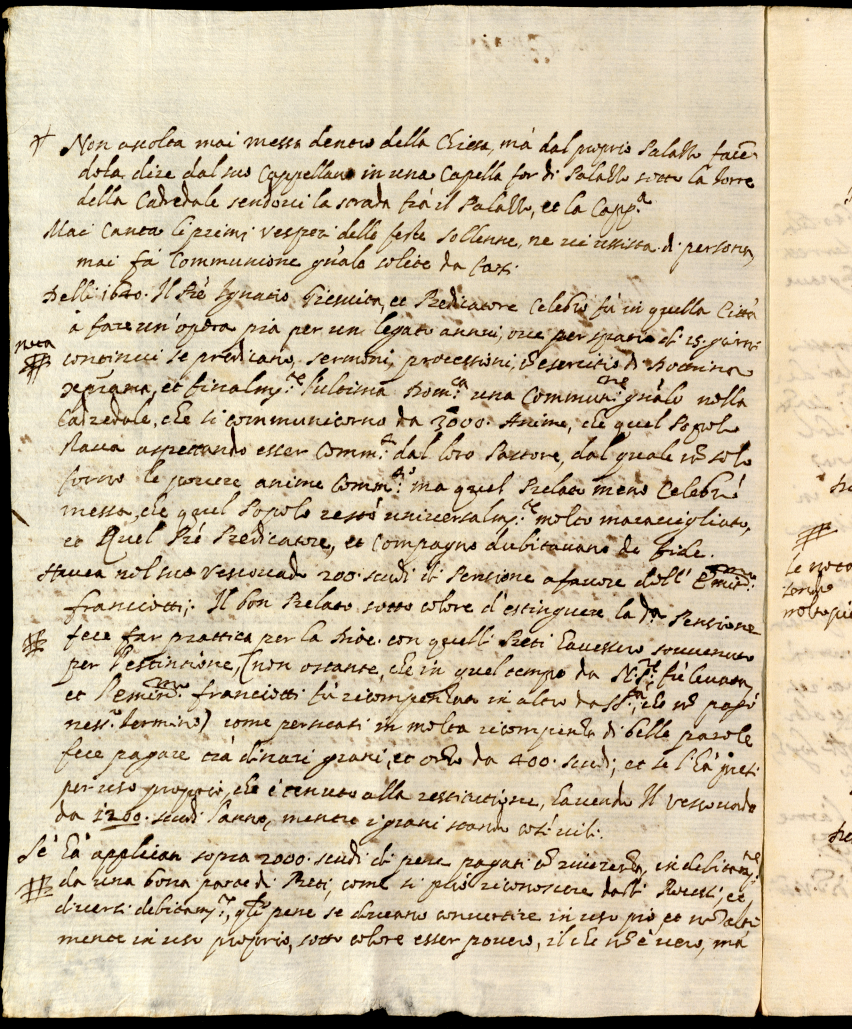 Non ascolta mai messa dentro della Chiesa, mà dal proprio Palazzo facen
dola dire dal suo Cappellano in una Capella for di Palazzo sotto la torre
della Catredale sendovi la strada trà il Palazzo, et la Capp.a
Mai Canta li primi vesperi delle feste sollenne, ne vi assista di persona,
mai fà Communione g'nale solite da farsi.
Delli 1640. Il Prè Ignatio Giesuita, et Predicatore Celebre fù in quella Città
à fare un'opera pia per un legato annui, ove per spatio di 15. giorni
nota
continui se predicano, sermoni, processioni, et esercitio di Dottrina
xρiana, et finalm.te l'ultima Dom.ca una Commun.ne g'nale nella
Catredale, che si communicorno da 3000. Anime, che quel Popolo
stava aspettando esser Comm.ti dal loro Pastore, dal quale nò solo
forno le povere anime Comm.te ma quel Prelato meno Celebrò
messa, che quel Popolo restò universalm.te molto maravegliato,
et Quel Prè Predicatore, et Compagno dubitavano de fide.
Haveva nel suo Vescovado 200. scudi di Pensione a favore dell' Emin.mo
franciotti; Il bon Prelato sotto colore d'estinguere la d.a Pensione
fece far prattica per la Dioc. con quelli Preti l'havessero sovvenuto
per l'estintione, (non ostante, che in quel tempo da N.S.re fù levata,
et l'Emin.mo franciotti fù ricompensato in altro da S.S.tà, che nò pagò
ness.n termine) come persuasi in molta ricompensa di belle parole
fece pagare trà dinari grani, et orzo da 400. scudi, et se l'hà presi
per uso proprio, che è tenuto alla restitutione, havendo Il Vescovado
da 1200. scudi l'anno, mentre i grani stanno così vili.
Se hà applicati sopra 2000. scudi di pene pagati et riscossi, indebitam.te
da una bona parte di Preti, come si può riconoscere dalli Processi, et
diversi debitam.te, q'le pene se dovevano convertire in uso pio et nò altri
mente in uso proprio, sotto colore esser povero, il che nò è vero, mà